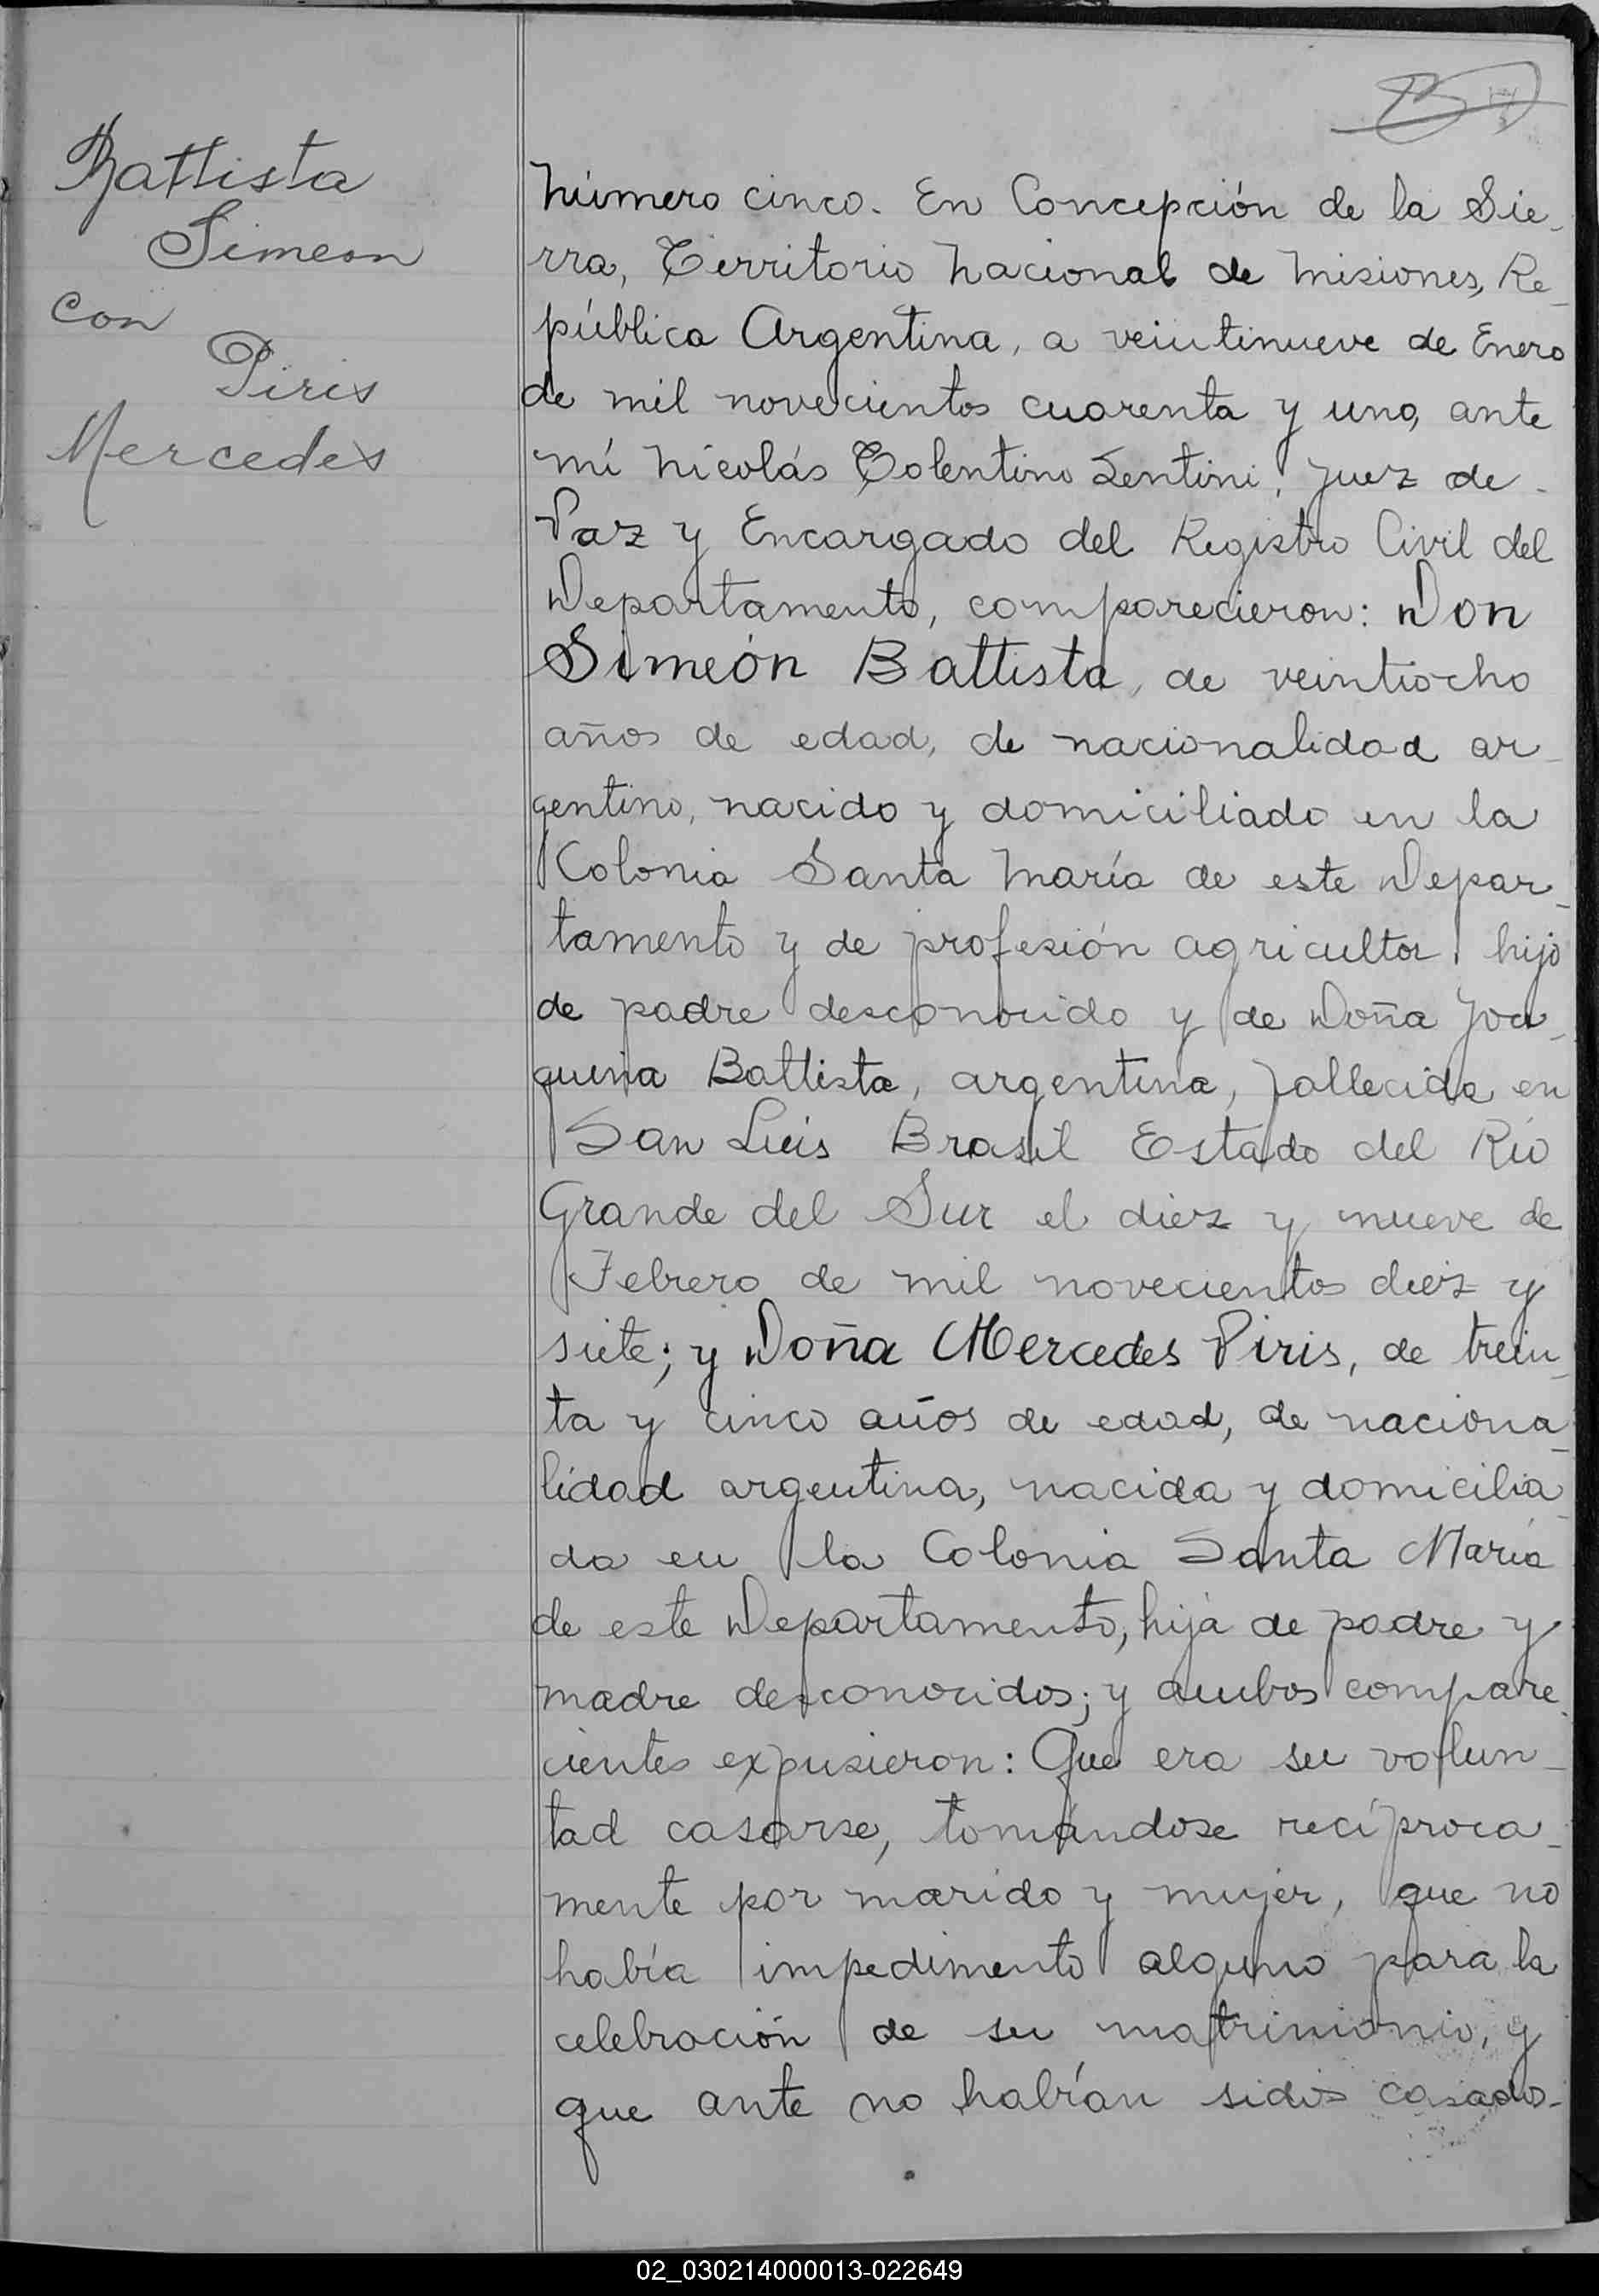 Battista
Simeon
con
Piris
Mercedes
Número cinco. En Concepción de la Sie-
rra, Territorio Nacional de Misiones, Re-
pública Argentina, a veintinueve de Enero
de mil novecientos cuarenta y uno, ante
mí Nicolás Tolentino Sentini, Juez de
Paz y Encargado del Registro Civil del
Departamento, comparecieron: Don
Simeón Battista, de veintiocho
años de edad, de nacionalidad ar-
gentino, nacido y domiciliado en la
Colonia Santa María de este Depar-
tamento y de profesión agricultor, hijo
de padre desconocido y de Doña Joa-
quina Battista, argentina, fallecida en
San Luis Brasil Estado del Río
Grande del Sur el diez y nueve de
Febrero de mil novecientos diez y
siete; y Doña Mercedes Piris, de trein-
ta y cinco años de edad, de naciona-
lidad argentina, nacida y domicilia-
da en la Colonia Santa María
de este Departamento, hija de padre y
madre desconocidos; y ambos compare-
cientes expusieron: Que era su volun-
tad casarse, tomándose recíproca-
mente por marido y mujer, que no
había impedimento alguno para la
celebración de su matrimonio, y
que ante no habían sidos casados-
02_030214000013-022649